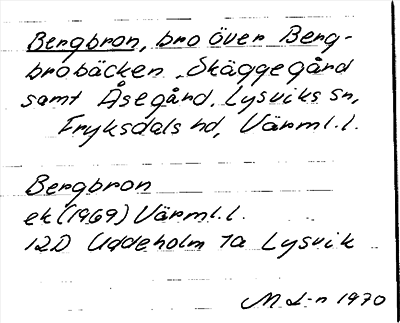 Bergbron, bro över Berg-
brobäcken, Skäggegård
samt Åsegård, Lysviks sn,
Fryksdals hd, Värml.l.
Bergbron
ek (1969) Värml.l.
12D Uddeholm 7a Lysvik
M L-n 1970